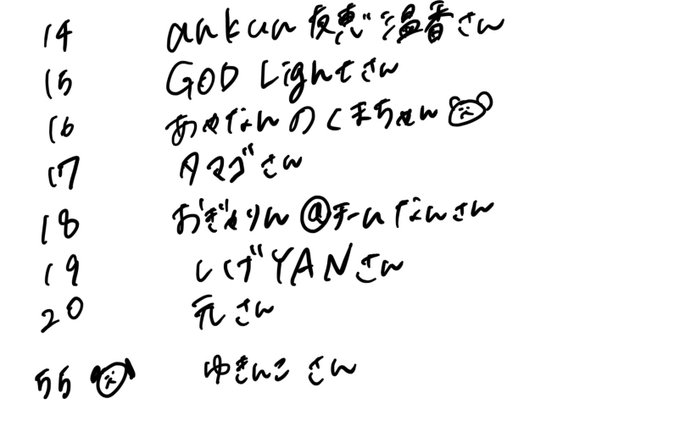 14 ankun 夜恵温香さん
15 GOD Lightさん
16 あゃなんのくまちゃん
17 タマゴさん
18 おぎゃりん@チームなんさん
19 しげYANさん
20 元さん
55 ゆきんこさん